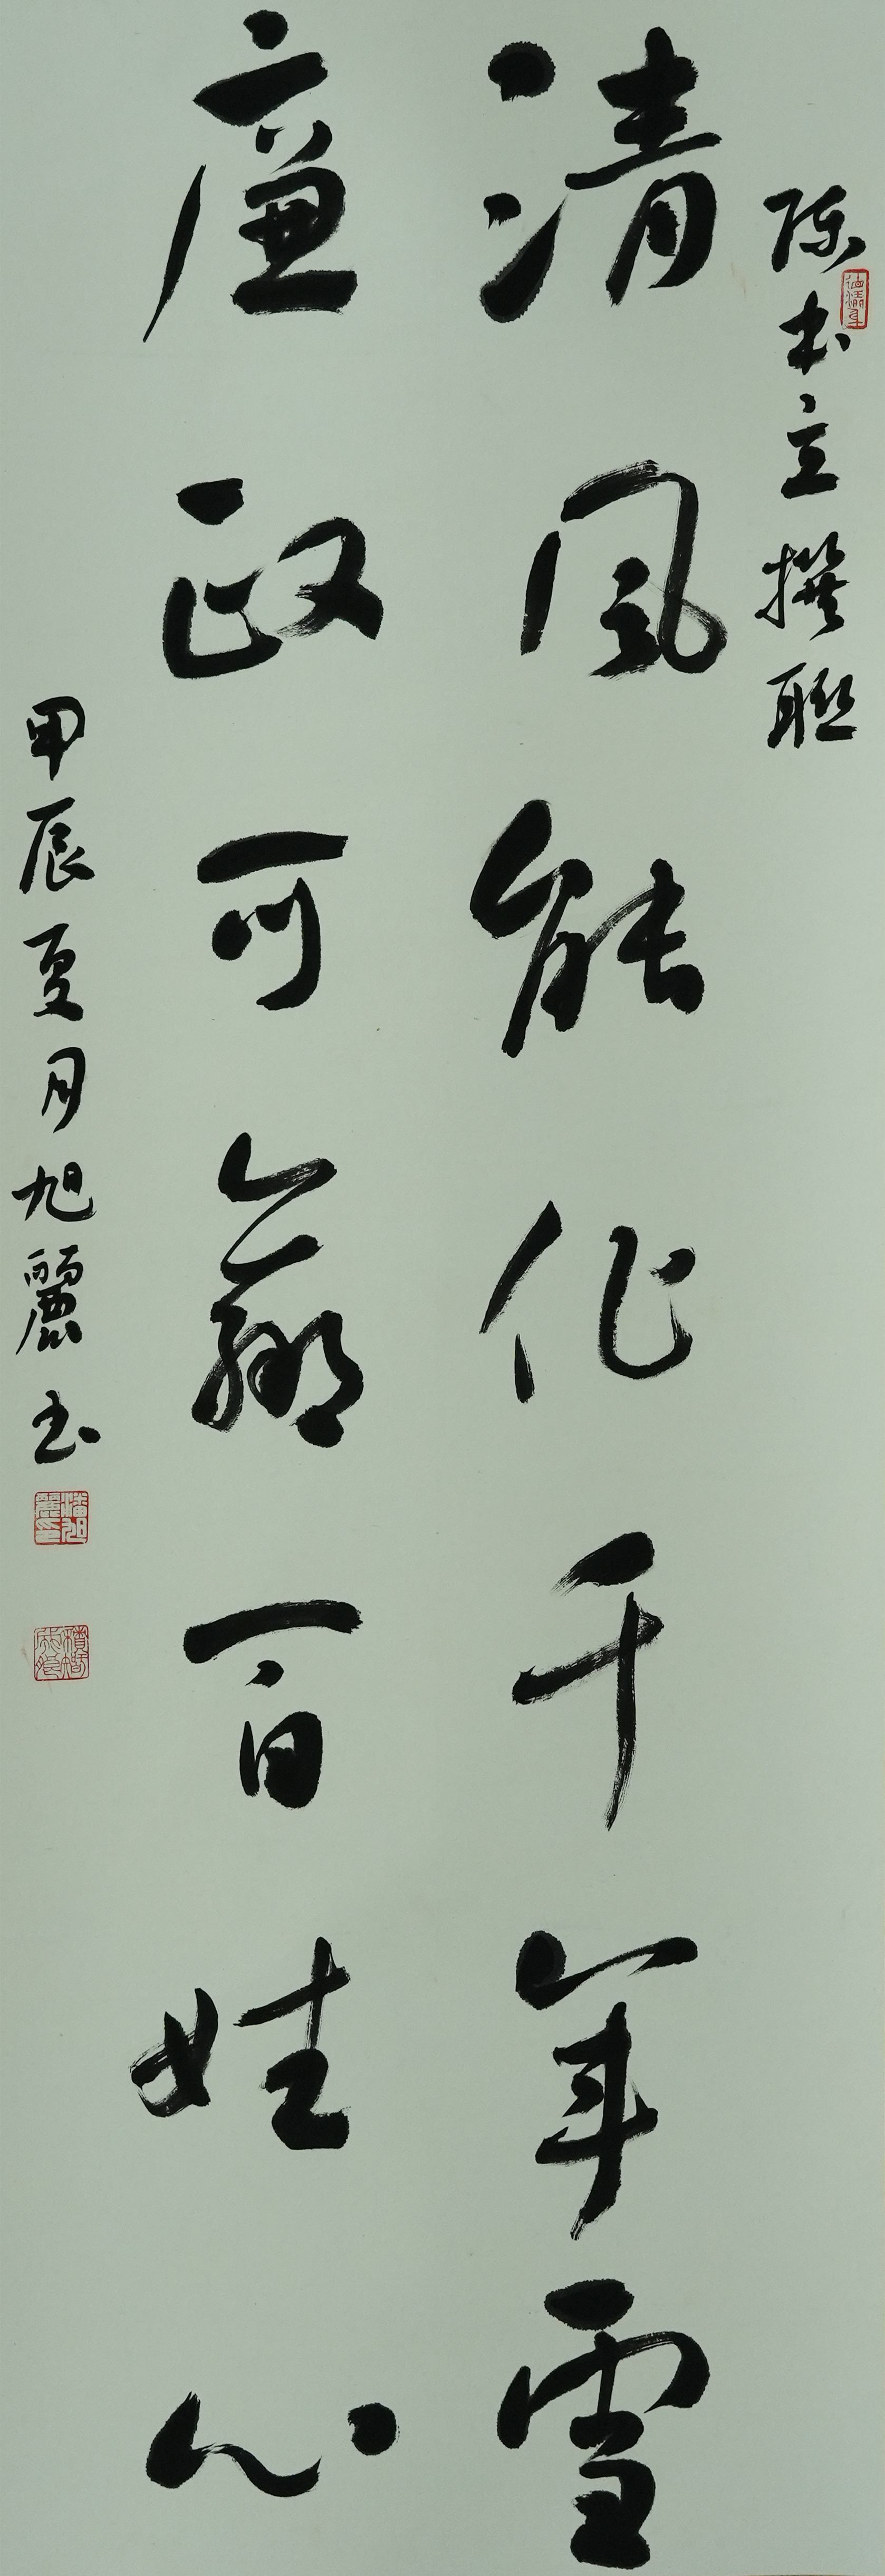 陈书立撰联
清风能化千年雪
廉政可赢百姓心
甲辰夏月旭麗书